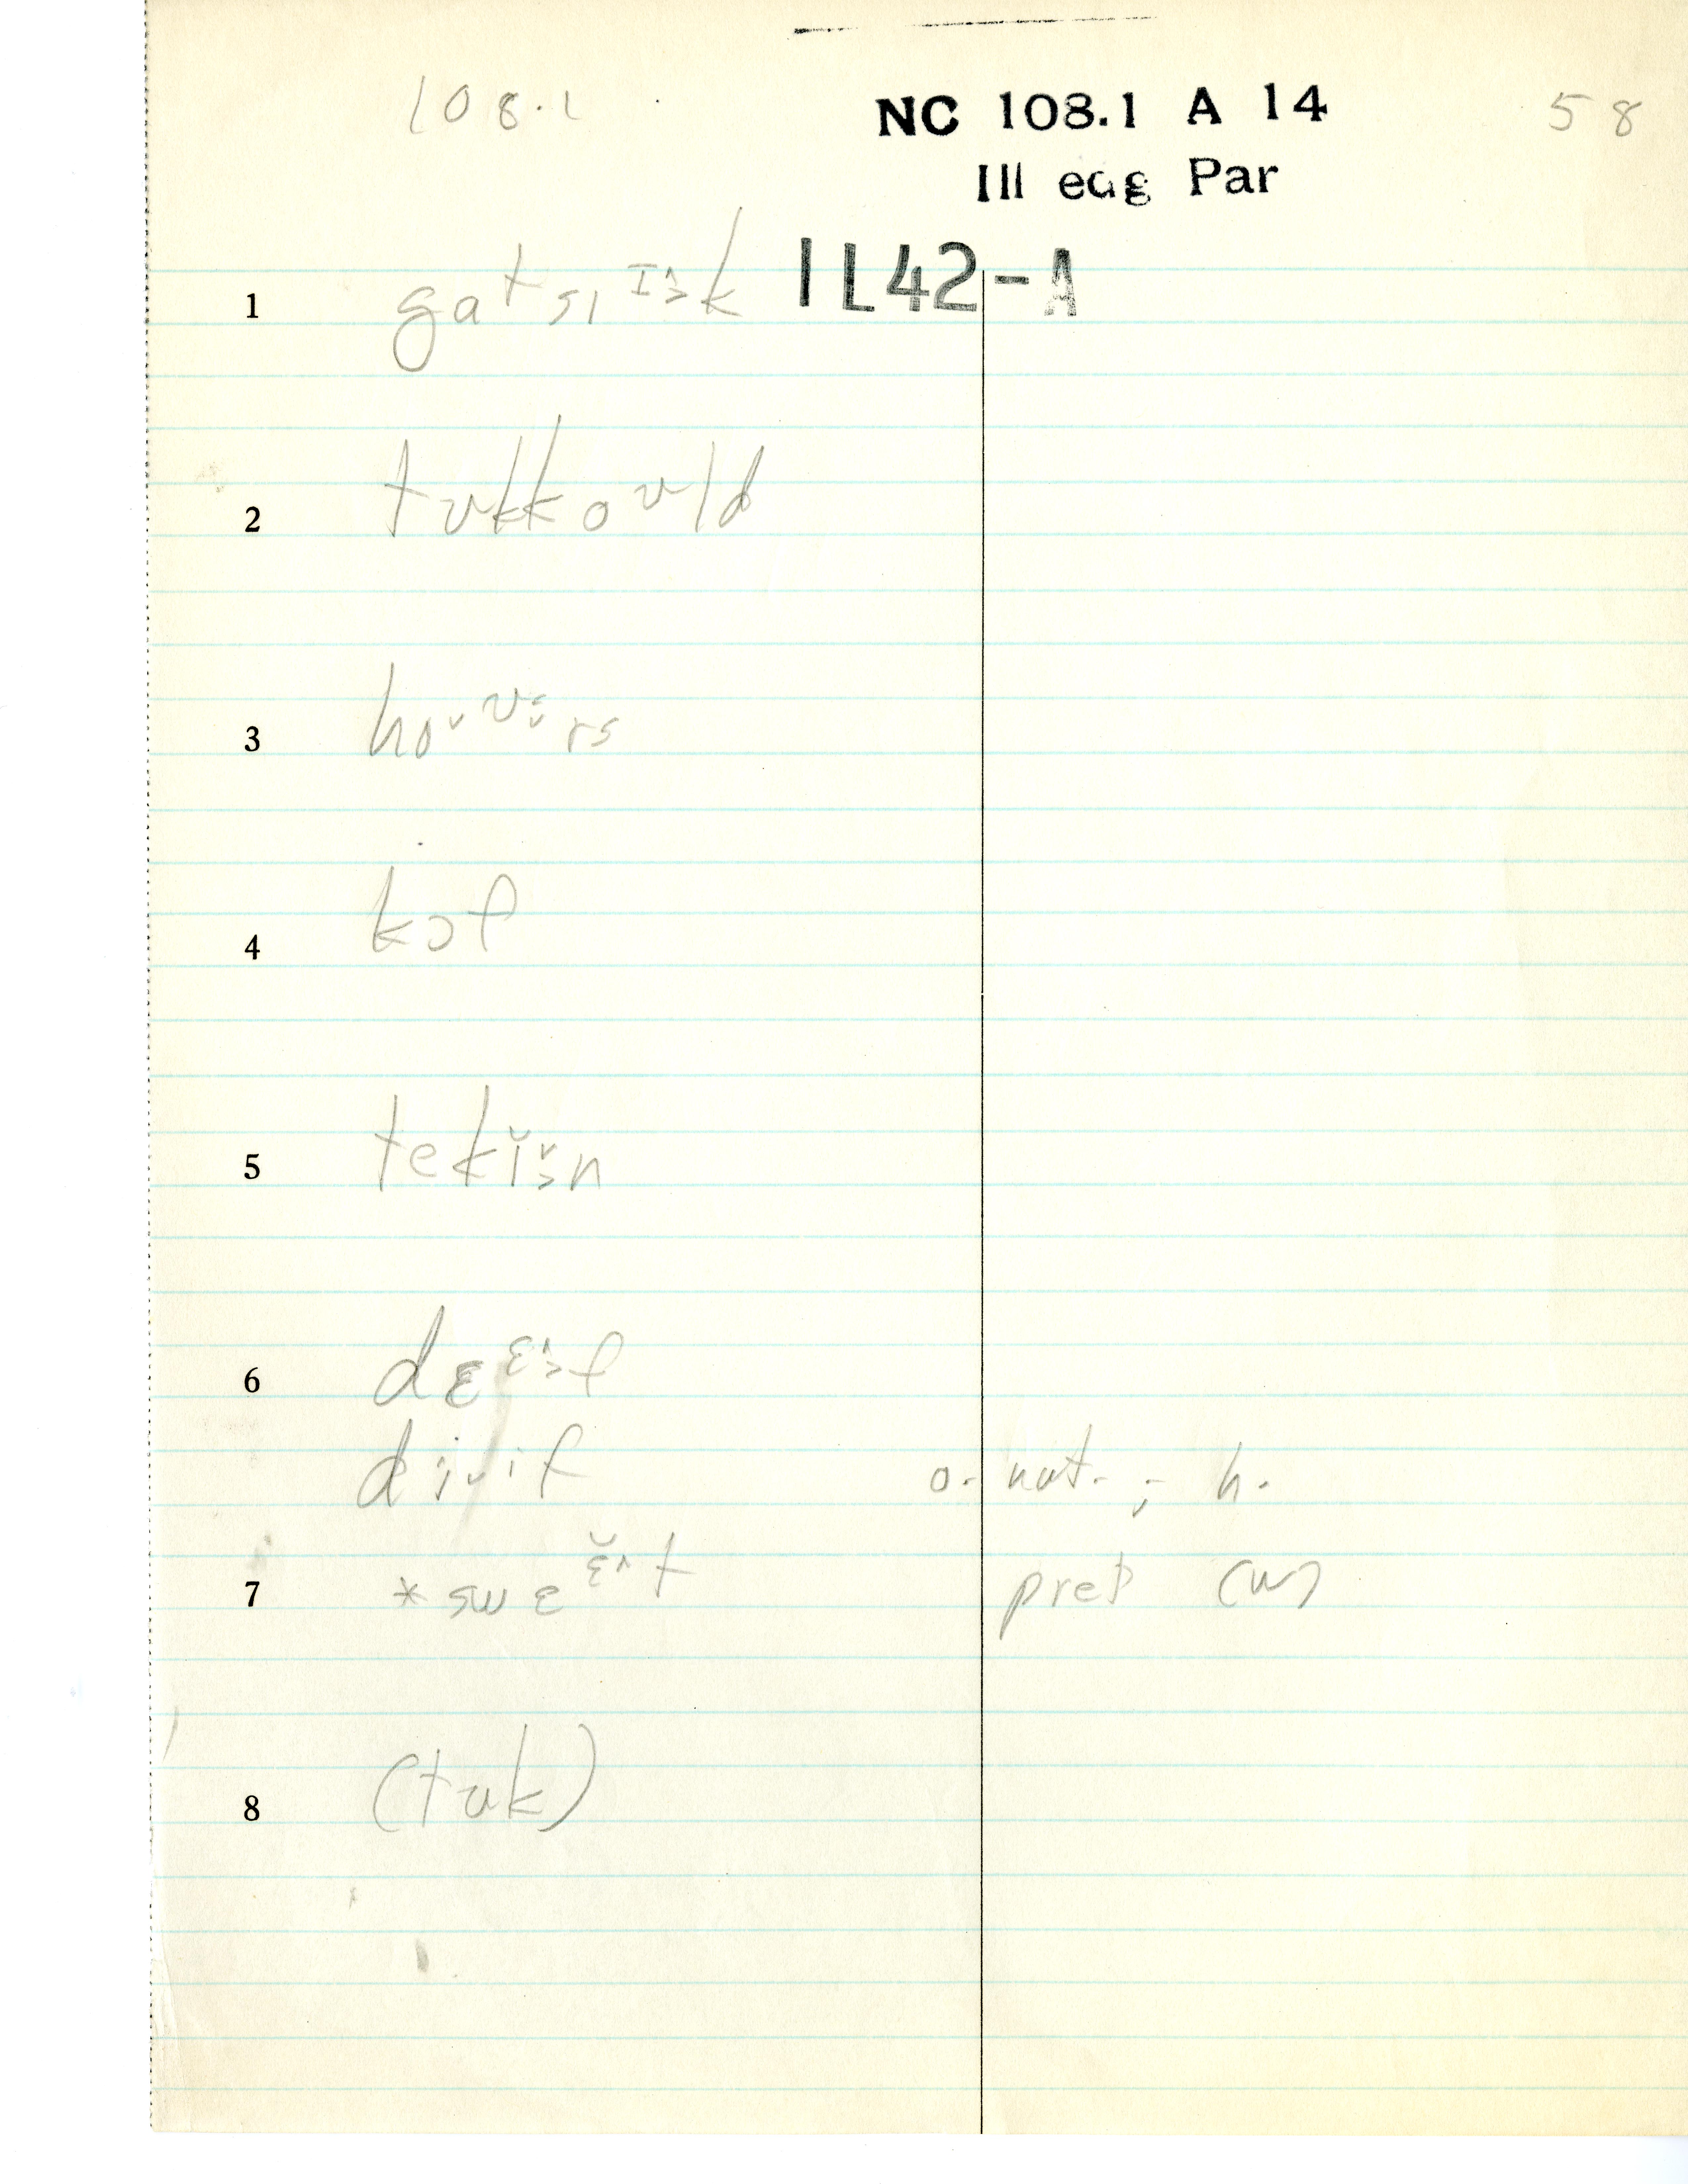 108.1
NC 108.1 A 14
58
Ill edg Par
IL42-A
1 gat sɪ ɪ˄>k
2 tʊkkoʊld
3 ho˅ ʊ̆˅ rs
4 kɔf
5 tekĭš̬n
6 dɛ ɛ˄>f
di˅if o. nat. ; h.
7 *swɛ ɛ̆˄t pret (w)
8 (tʊk)